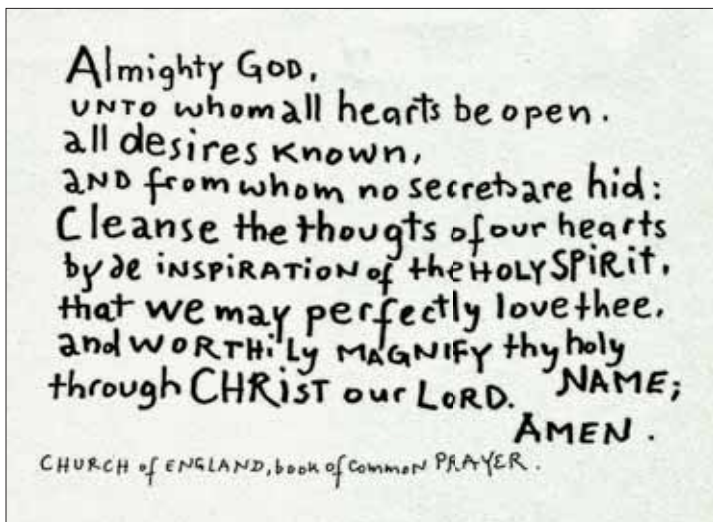 Almighty GOD,
UNTO whom all hearts be open.
all desires known,
AND from whom no secrets are hid:
Cleanse the thougts of our hearts
by de INSPIRATION of the HOLY SPIRIT,
that we may perfectly love thee,
and WORTHiLy MAGNIFY thy holy
NAME;
through CHRIST our LORD.
AMEN.
CHURCH of ENGLAND, book of Common PRAYER.